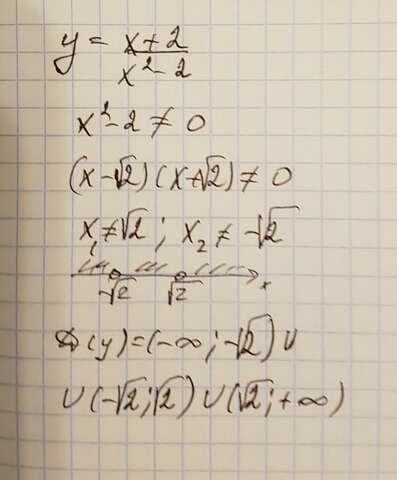 y = (x+2)/(x²-2)
x²-2 ≠ 0
(x-√2)(x+√2) ≠ 0
x₁ ≠ √2 ; x₂ ≠ -√2
-√2 √2 x
D(y)=(-∞;-√2) ∪
∪(-√2;√2)∪(√2;+∞)